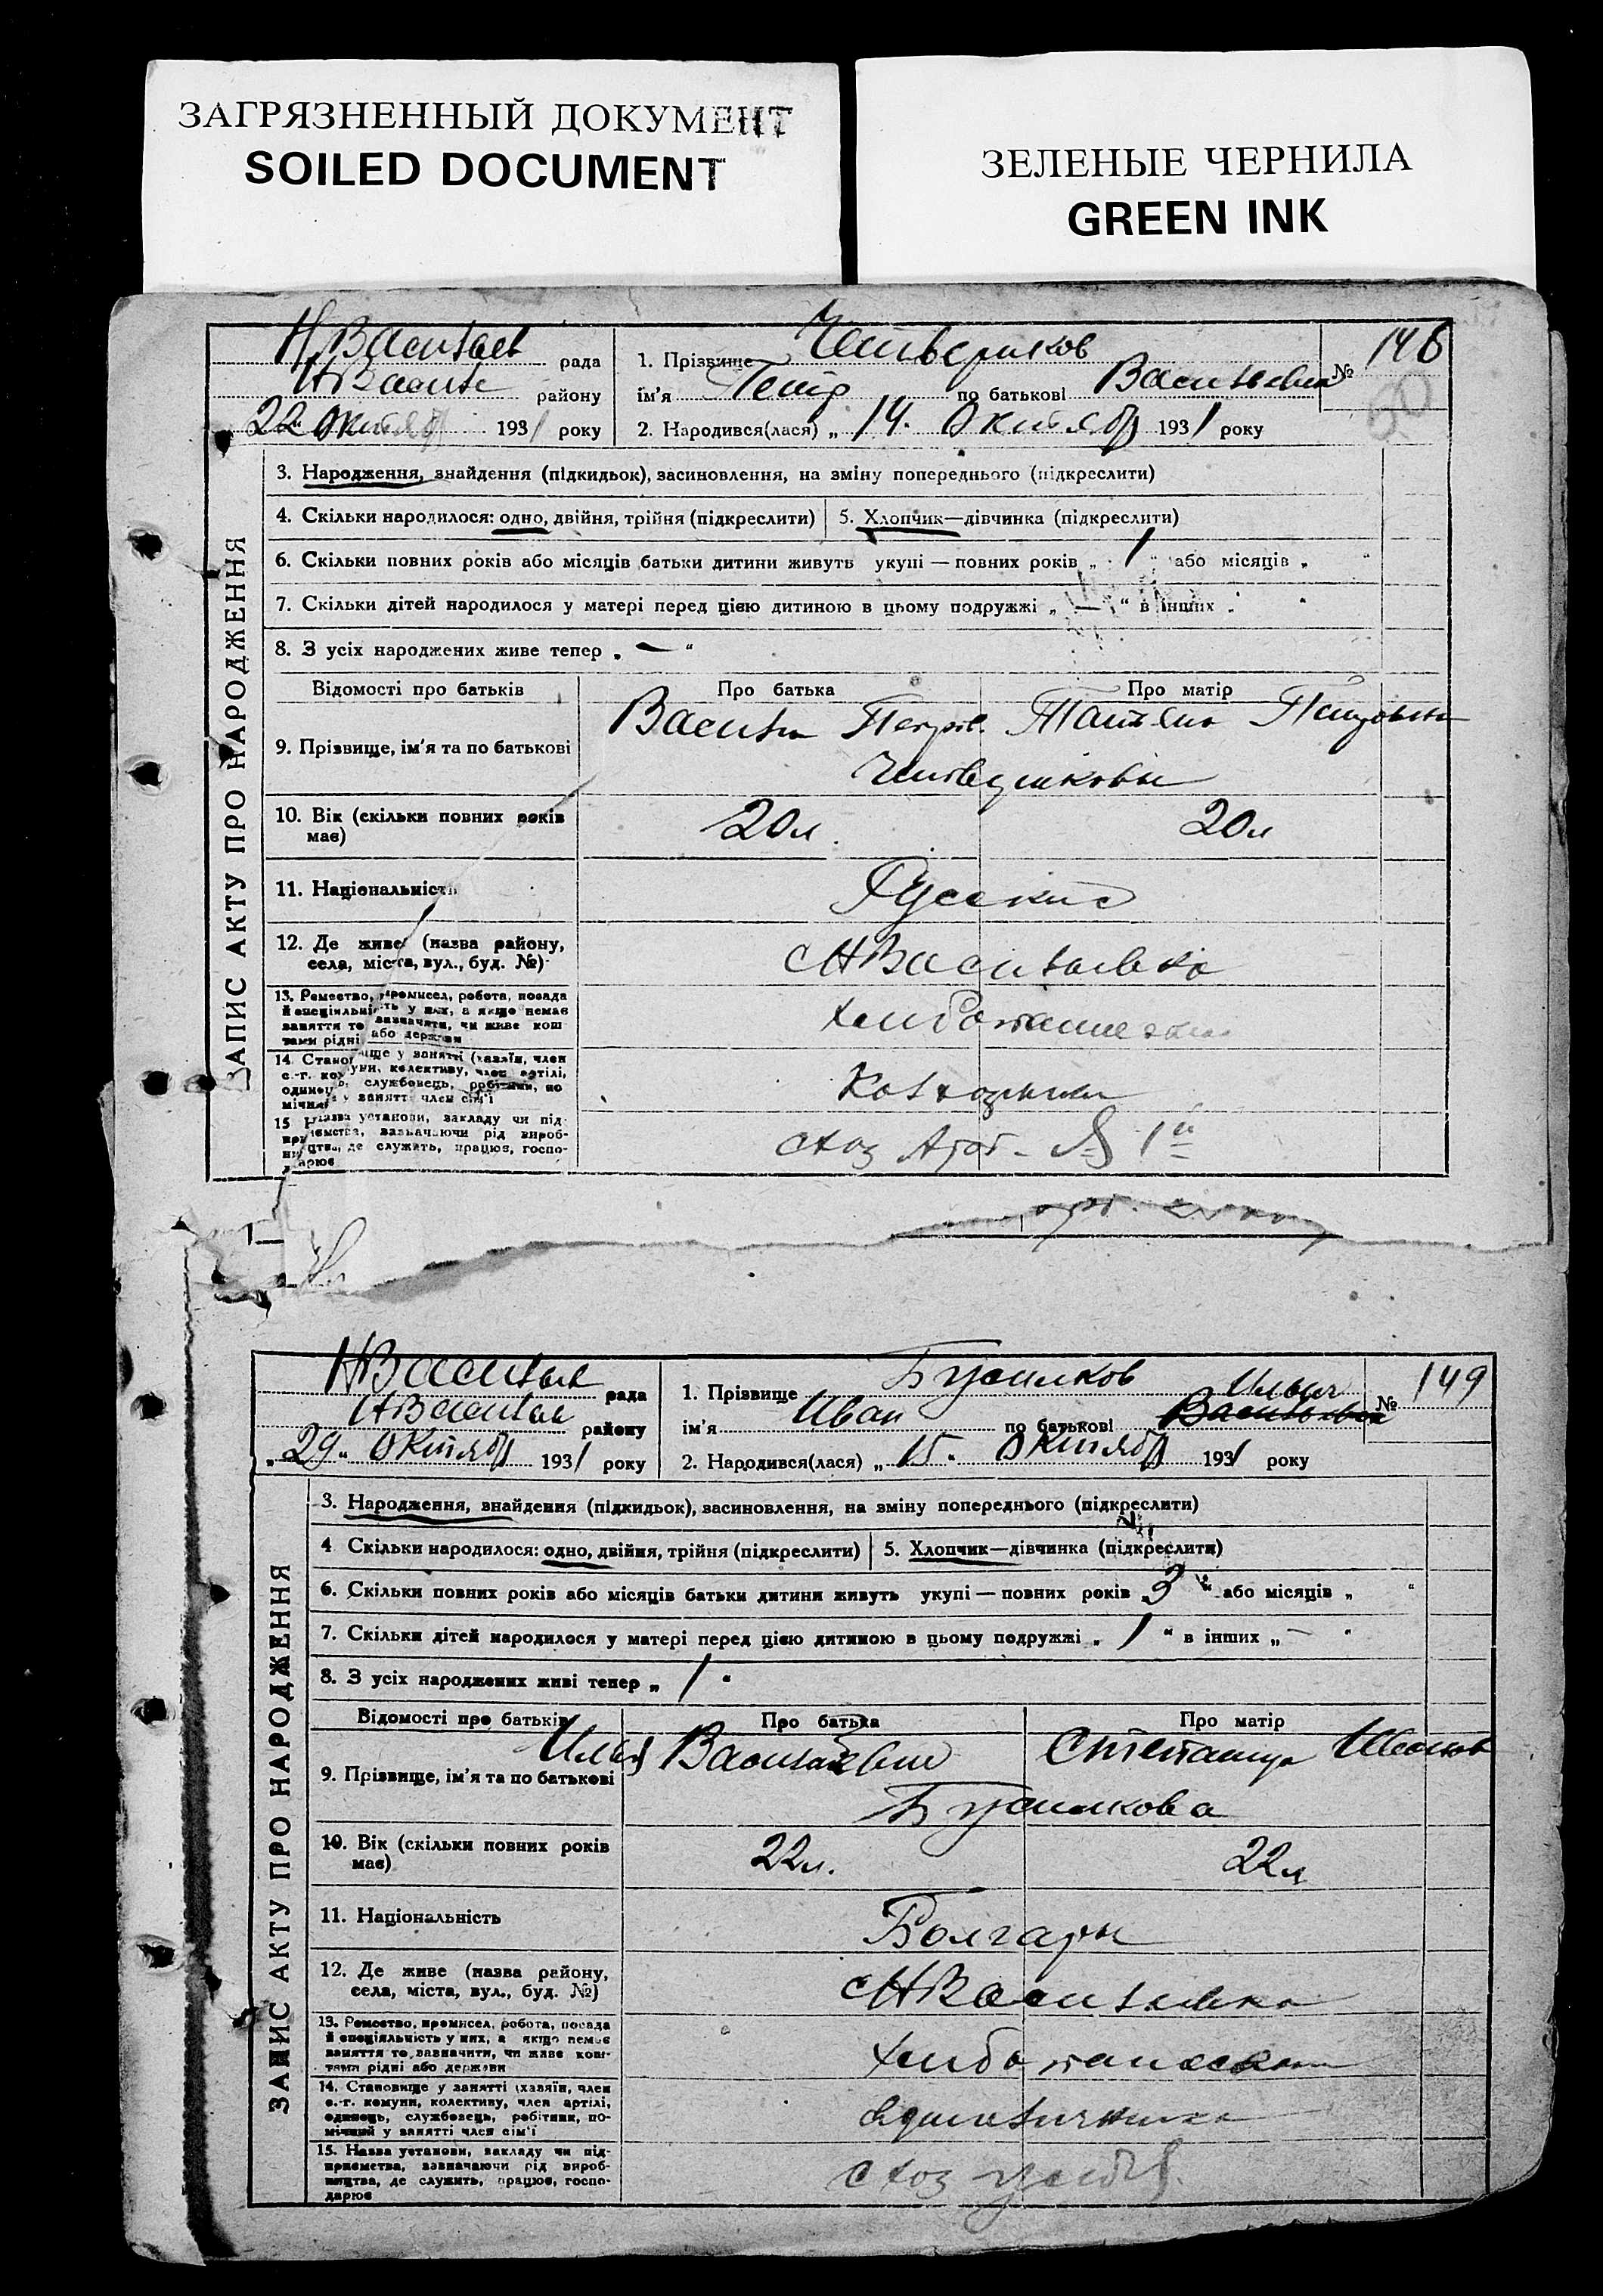 ЗАГРЯЗНЕННЫЙ ДОКУМЕНТ
SOILED DOCUMENT
ЗЕЛЕНЫЕ ЧЕРНИЛА
GREEN INK
ЗАПИС АКТУ ПРО НАРОДЖЕННЯ
рада
району
22 октяб 1931 року
1. Прізвище Четвериков
№ 146
50
ім'я Петр по батькові Васильевич
2. Народився(лася) „ 14. октяб 1931 року
3. Народження, знайдення (підкидьок), засиновлення, на зміну попереднього (підкреслити)
4. Скільки народилося: одно, двійня, трійня (підкреслити)
5. Хлопчик—дівчинка (підкреслити)
6. Скільки повних років або місяців батьки дитини живуть укупі — повних років „ 1 “ або місяців „ “
7. Скільки дітей народилося у матері перед цією дитиною в цьому подружжі „ — “ в інших „ “
8. З усіх народжених живе тепер „ — “
Відомості про батьків Про батька Про матір
9. Прізвище, ім'я та по батькові
Четвериковы
10. Вік (скільки повних років має)
20л. 20л
11. Національність
Русские
12. Де живе (назва району, села, міста, вул., буд. №)
с НВасильевка
13. Ремество, промисел, робота, посада й спеціяльність у них, а якщо немає заняття то зазначити, чи живе коштами рідні або держави
14. Становище у занятті (хазяїн, член с.-г. комуни, колективу, член артілі, одинець, службовець, робітник, помічний у занятті член сім'ї
15 Назва установи, закладу чи підприємства, зазначаючи рід виробництва, де служить, працює, господарює
ЗАПИС АКТУ ПРО НАРОДЖЕННЯ
рада
району
„ 29 “ октяб 1931 року
1. Прізвище
№ 149
Ильич
ім'я Иван по батькові Васильевич
2. Народився(лася) „ 15 “ октяб 1931 року
3. Народження, знайдення (підкидьок), засиновлення, на зміну попереднього (підкреслити)
4 Скільки народилося: одно, двійня, трійня (підкреслити)
5. Хлопчик—дівчинка (підкреслити)
6. Скільки повних років або місяців батьки дитини живуть укупі — повних років „ 3 “ або місяців „ “
7. Скільки дітей народилося у матері перед цією дитиною в цьому подружжі „ 1 “ в інших „ — “
8. З усіх народжених живі тепер „ 1 “
Відомості про батьків Про батька Про матір
9. Прізвище, ім'я та по батькові
Илья Васильевич
10. Вік (скільки повних років має)
22л. 22л
11. Національність
Болгары
12. Де живе (назва району, села, міста, вул., буд. №)
с НВасильевка
13. Ремество, промисел, робота, посада й спеціяльність у них, а якщо немає заняття то зазначити, чи живе коштами рідні або держави
14. Становище у занятті (хазяїн, член с.-г. комуни, колективу, член артілі, одинець, службовець, робітник, помічний у занятті член сім'ї
15. Назва установи, закладу чи підприємства, зазначаючи рід виробництва, де служить, працює, господарює